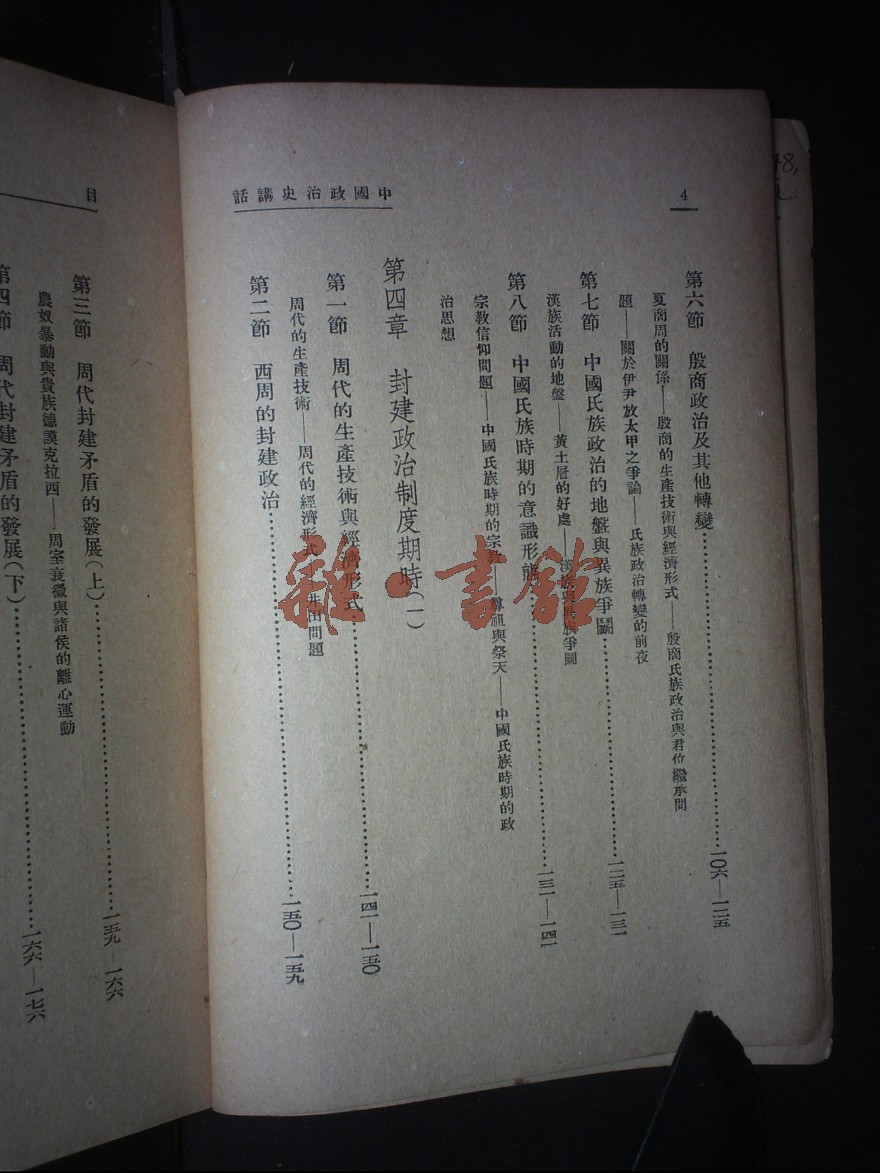 中國政治史講話
4
第六節　殷商政治及其他轉變……一〇六—一二五
夏商周的關係——殷商的生產技術與經濟形式——殷商氏族政治與君位繼承問
題——關於伊尹放太甲之爭論——氏族政治轉變的前夜
第七節　中國氏族政治的地盤與異族爭鬭……一二五—一三一
漢族活動的地盤——黃土層的好處——漢族與異族爭鬭
第八節　中國氏族時期的意識形態……一三一—一四一
宗教信仰問題——中國氏族時期的宗教——尊祖與祭天——中國氏族時期的政
治思想
第四章　封建政治制度期時（一）
第一節　周代的生產技術與經濟形式……一四一—一五〇
周代的生產技術——周代的經濟形式——井田問題
第二節　西周的封建政治……一五〇—一五九
目
第三節　周代封建矛盾的發展（上）……一五九—一六六
農奴暴動與貴族德謨克拉西——周室衰微與諸侯的離心運動
第四節　周代封建矛盾的發展（下）……一六六—一七六
雜·書館